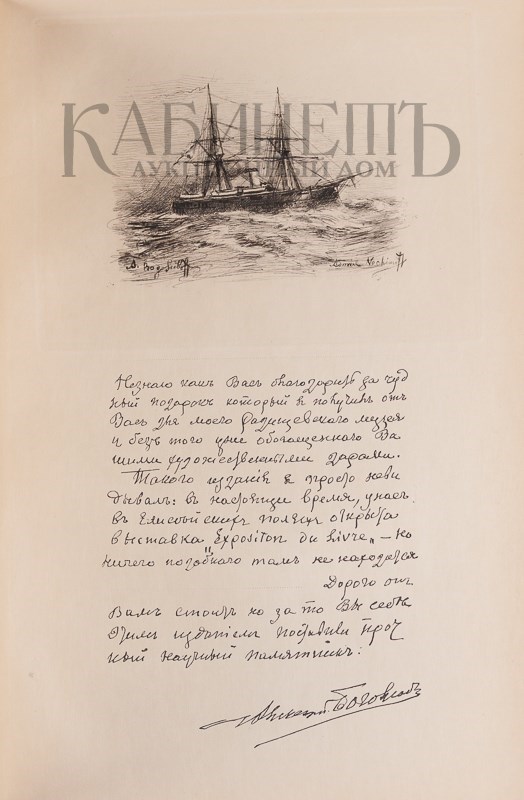 КАБИНЕТЪ
АУКЦИОННЫЙ ДОМ
Незнаю какъ Васъ благодарить за чуд
ный подарокъ который я получилъ отъ
Васъ для моего Радищевского музея
и безъ того уже обогащенного Ва
шими художественными дарами.
Такого изданія я просто неви
дывалъ: въ настоящи время, унасъ
въ Елисейскихъ поляхъ открыта
выставка "Expositon du Livre" — но
ничего подобнаго тамъ не находится
Дорого оно
Вамъ стоитъ но за то Вы себѣ
Этимъ изданіемъ поставили проч
ный научный памятникъ:
Боголюбовъ